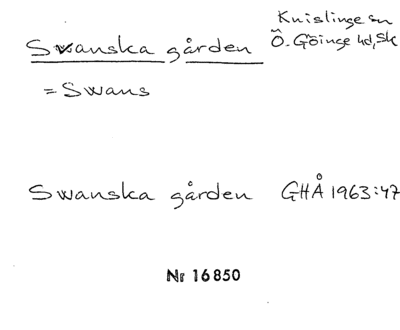 Knislinge sn
Swanska gården Ö. Göinge hd, Sk
= Swans
Swanska gården GHÅ 1963:47
Nr 16850